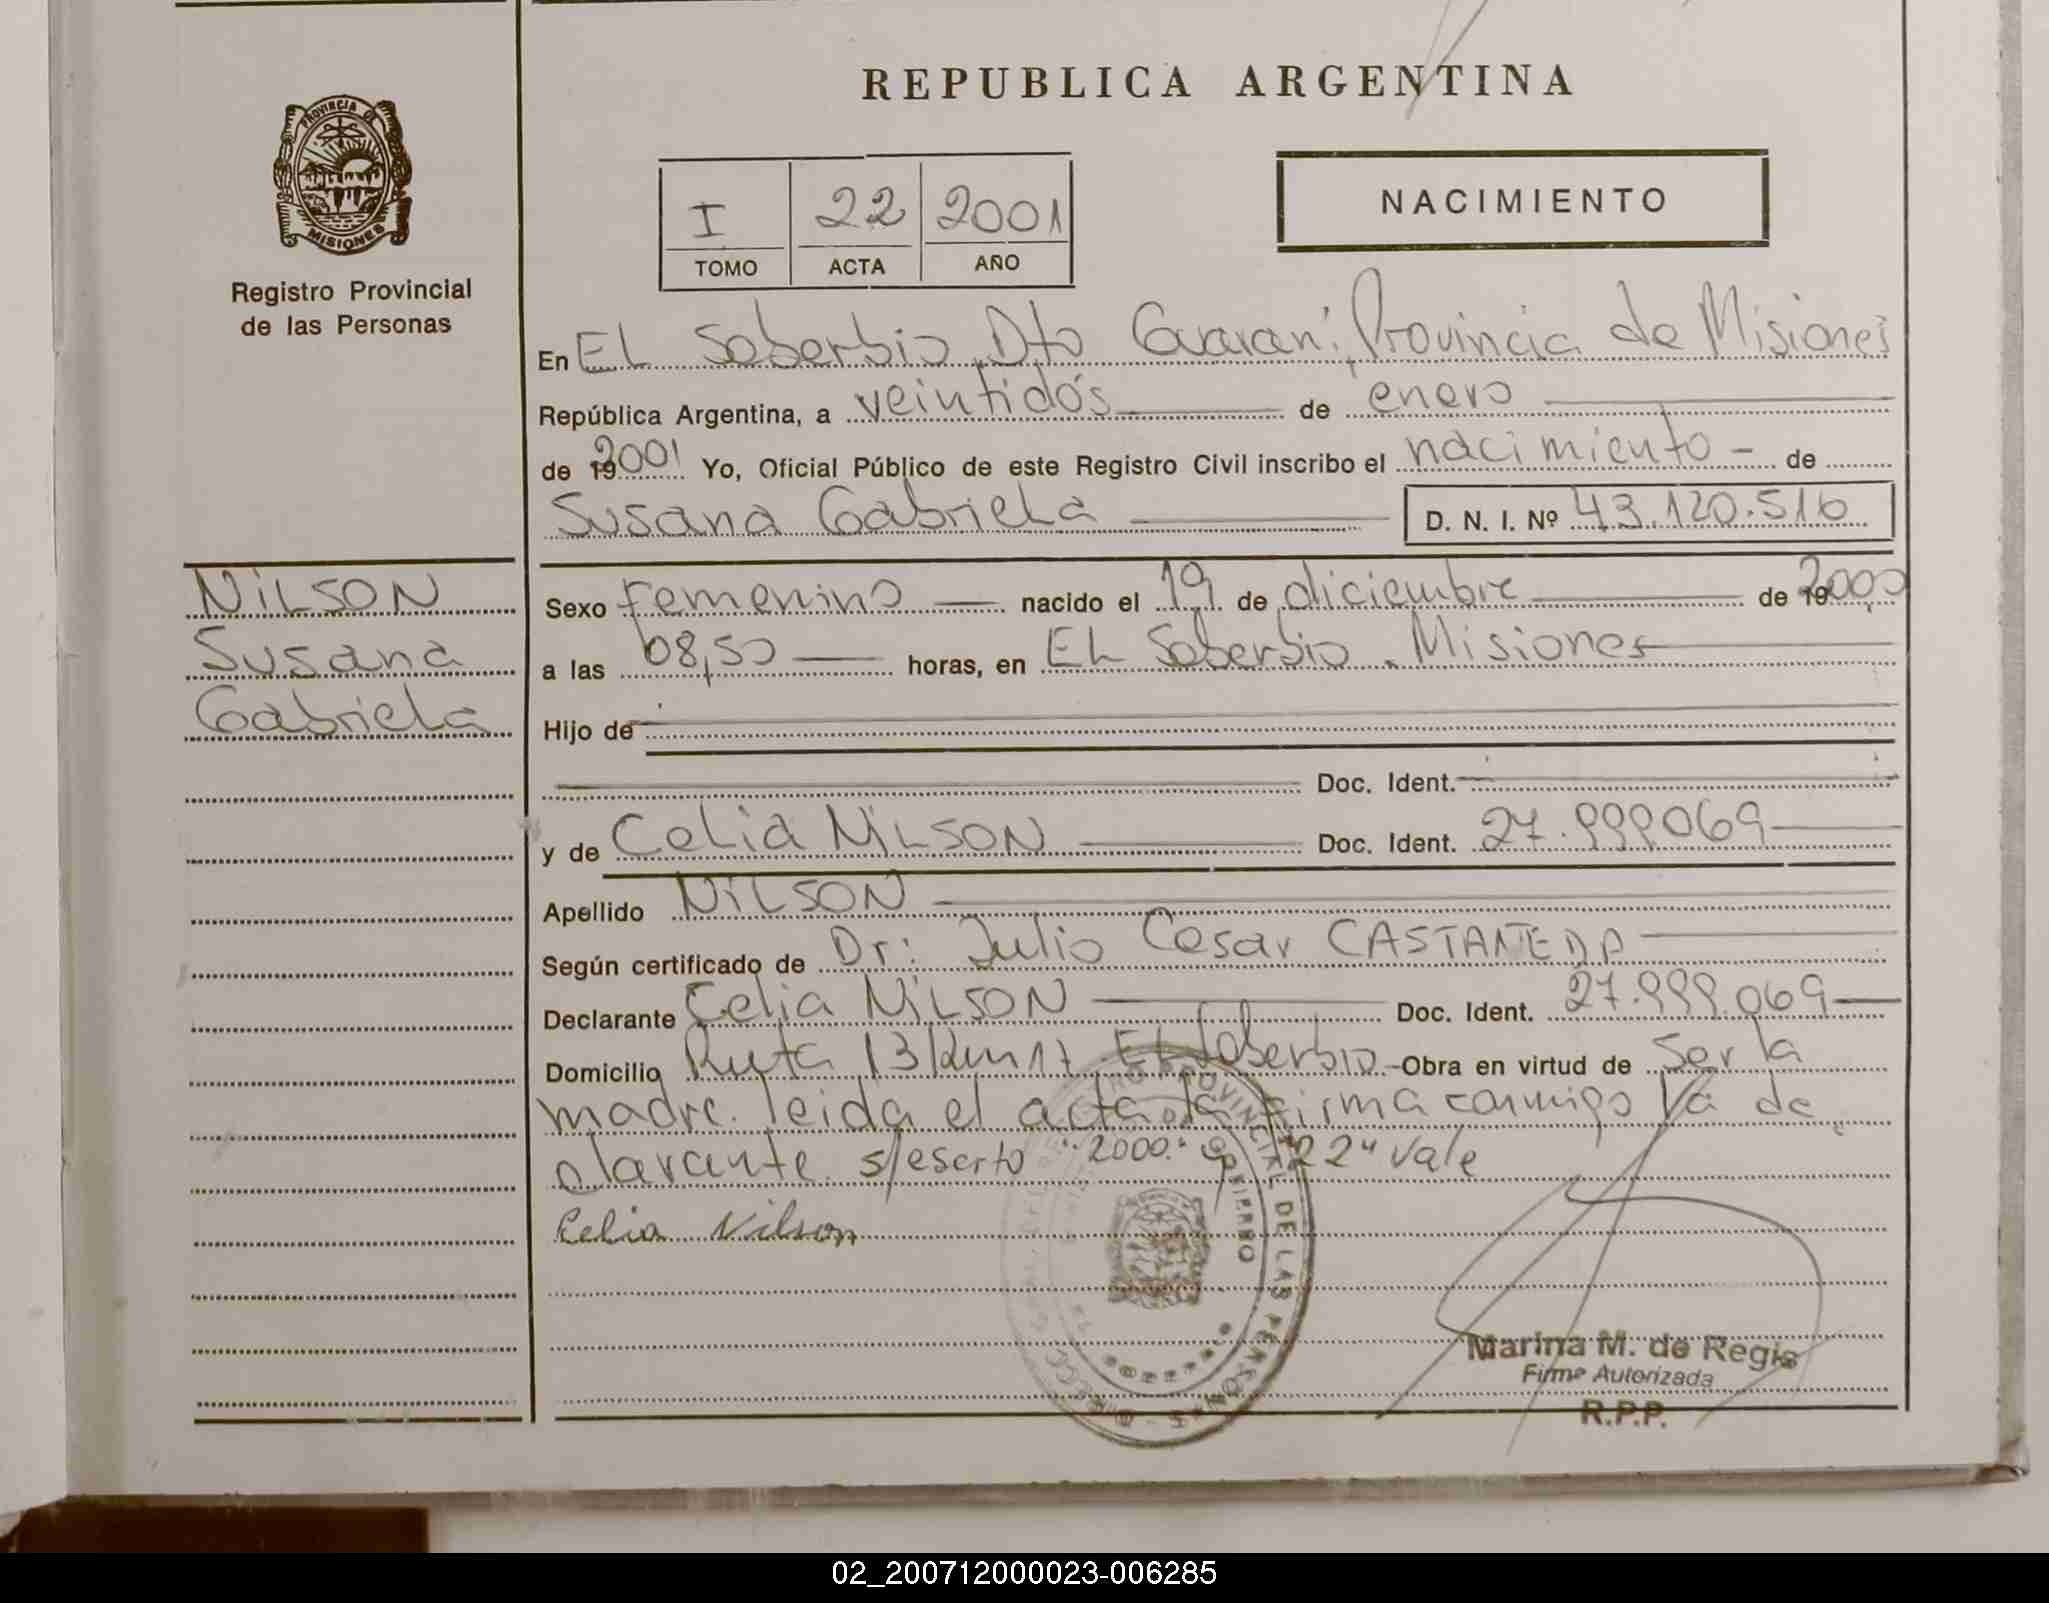 REPUBLICA ARGENTINA
PROVINCIA DE
MISIONES
Registro Provincial
de las Personas
I 22 2001
TOMO ACTA AÑO
NACIMIENTO
En EL Soberbio Dto Guaraní, Provincia de Misiones
República Argentina, a veintidós de enero
de 2001 Yo, Oficial Público de este Registro Civil inscribo el nacimiento - de
Susana Gabriela D. N. I. Nº 43.120.516
NiLSON
Susana
Gabriela
Sexo femenino nacido el 19 de diciembre de 2000
a las 08,50 horas, en EL Soberbio. Misiones
Hijo de
Doc. Ident.
y de Celia NiLSON Doc. Ident. 27.999069
Apellido NiLSON
Según certificado de Dr: Julio Cesar CASTAÑEDA
Declarante Celia NiLSON Doc. Ident. 27.999.069
Domicilio Ruta 13 Km 17 EL Soberbio - Obra en virtud de ser la
madre. leida el acta la firma conmigo la de
clarante. s/escrto "2000" y "22" vale
Celia Nilson
REGISTRO PROVINCIAL DE LAS PERSONAS
GOBIERNO
Marina M. de Regis
Firma Autorizada
R.P.P.
02_200712000023-006285